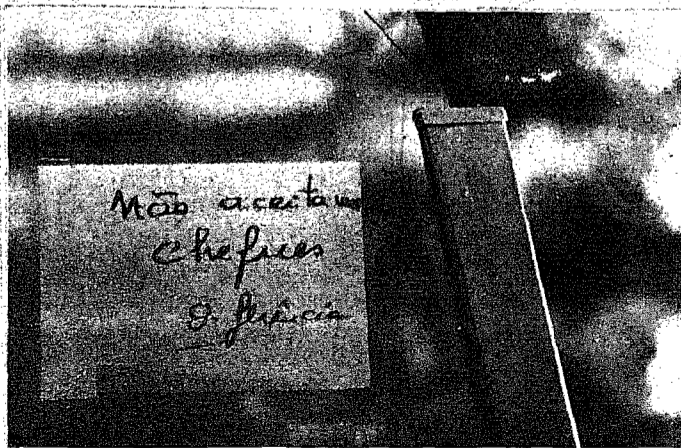 Não aceitamos
cheques
a. gerência